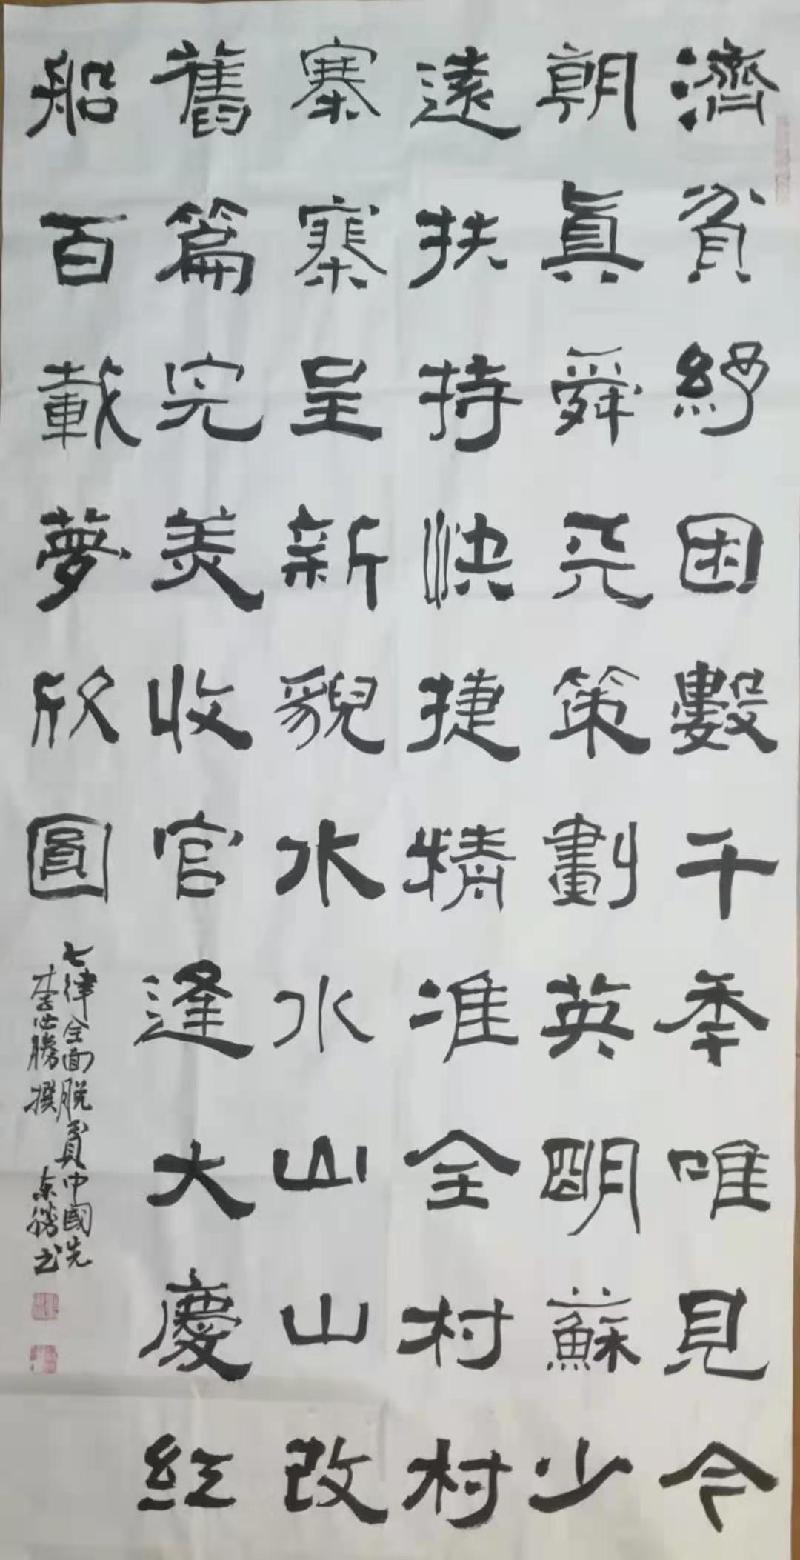 濟貧紓困數千年唯見今
朝眞舜天策劃英明蘇少
遠扶持快捷精准全村村
寨寨呈新貌水水山山改
舊篇完美收官逢大慶紅
船百載夢欣圓
七律全面脱貧中國先
李必勝撰 东勝书